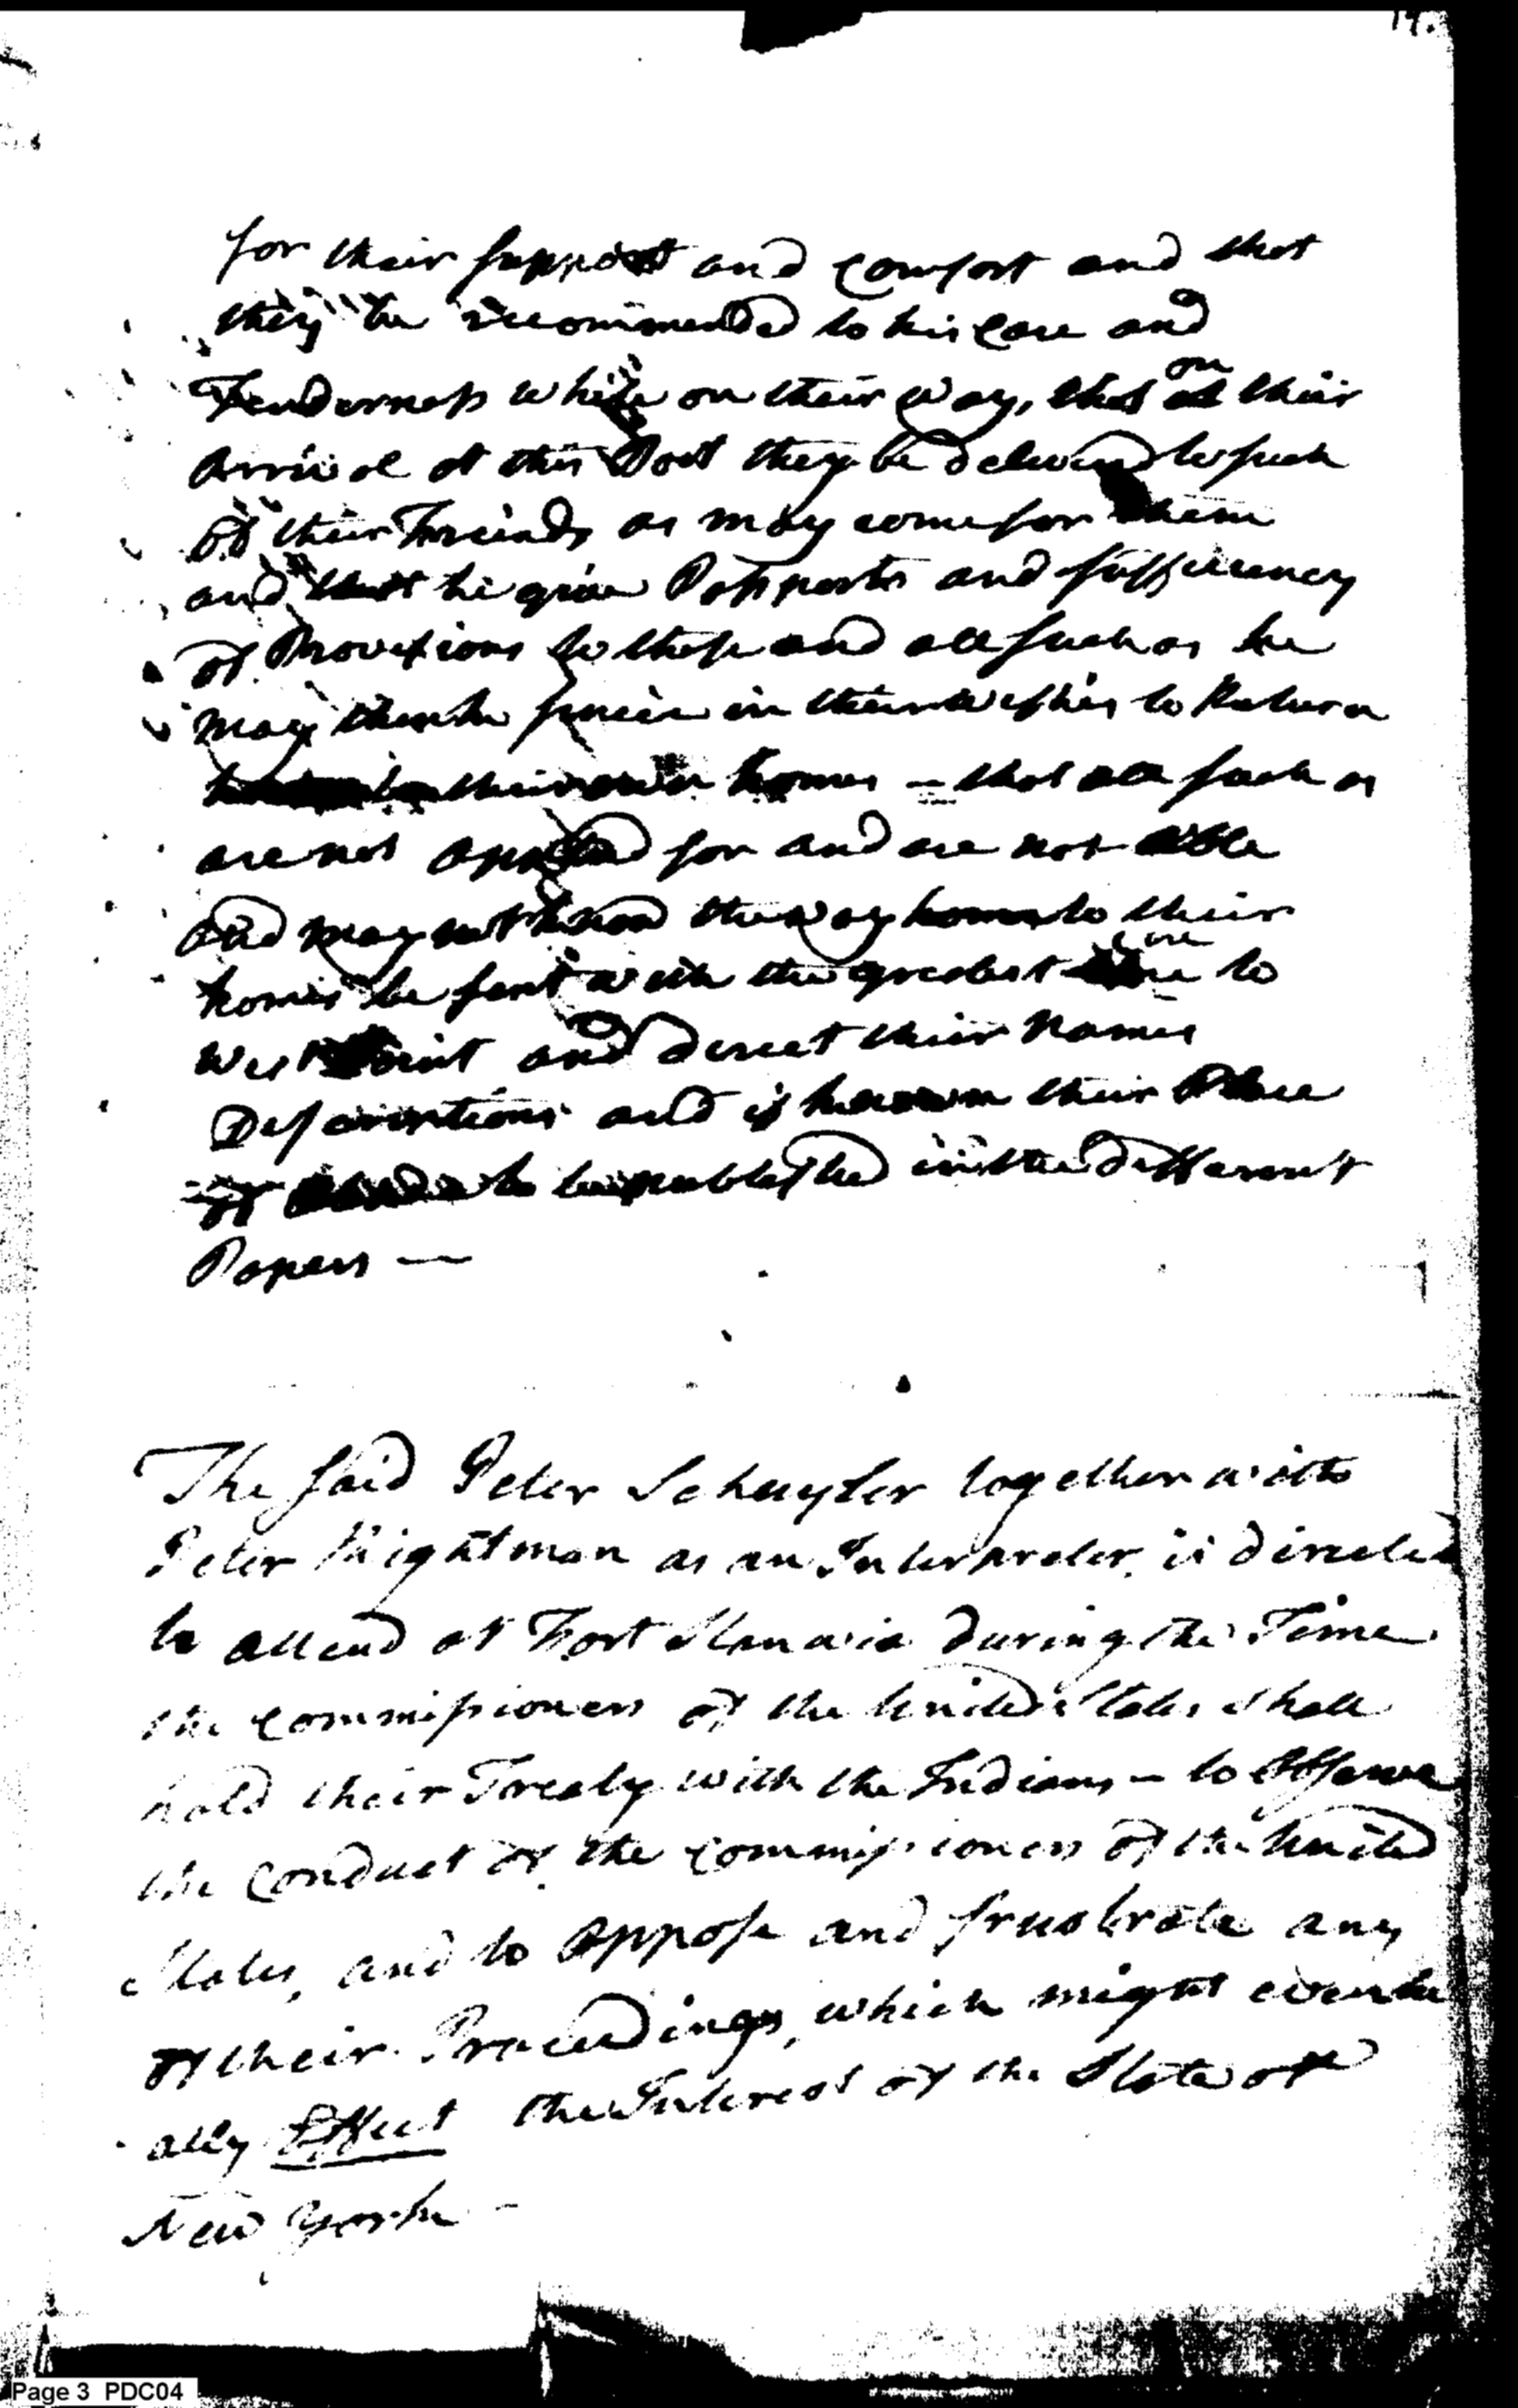 for their support and comfort and that
they be recommended to his Care and
Tenderness while on their way, that on their
Arrival at this Post they be delivered to such
of their Freinds as may come for them
and that he give Passports and sufficiency
of Provisions to these and all such as he
may think sincere in their wishes to Return
to their own homes – that all such as
are not applied for and are not able
and may not know the way home to their
homes be sent with the greatest Care to
West Point and direct their Names
Descriptions and if known their Place
of to be published in the different
Papers —
The said Peter Schuyler together with
Peter Rightman as an Interpreter, is directed
to attend at Fort Stanwix during the Time
the Commissioners of the United States shall
hold their Treaty with the Indians – to Observe
the Conduct of the Commissioners of the United
States, and to Oppose and frustrate any
of their Proceedings, which might eventu
ally Effect the Interest of the State of
New York –
Page 3 PDC04